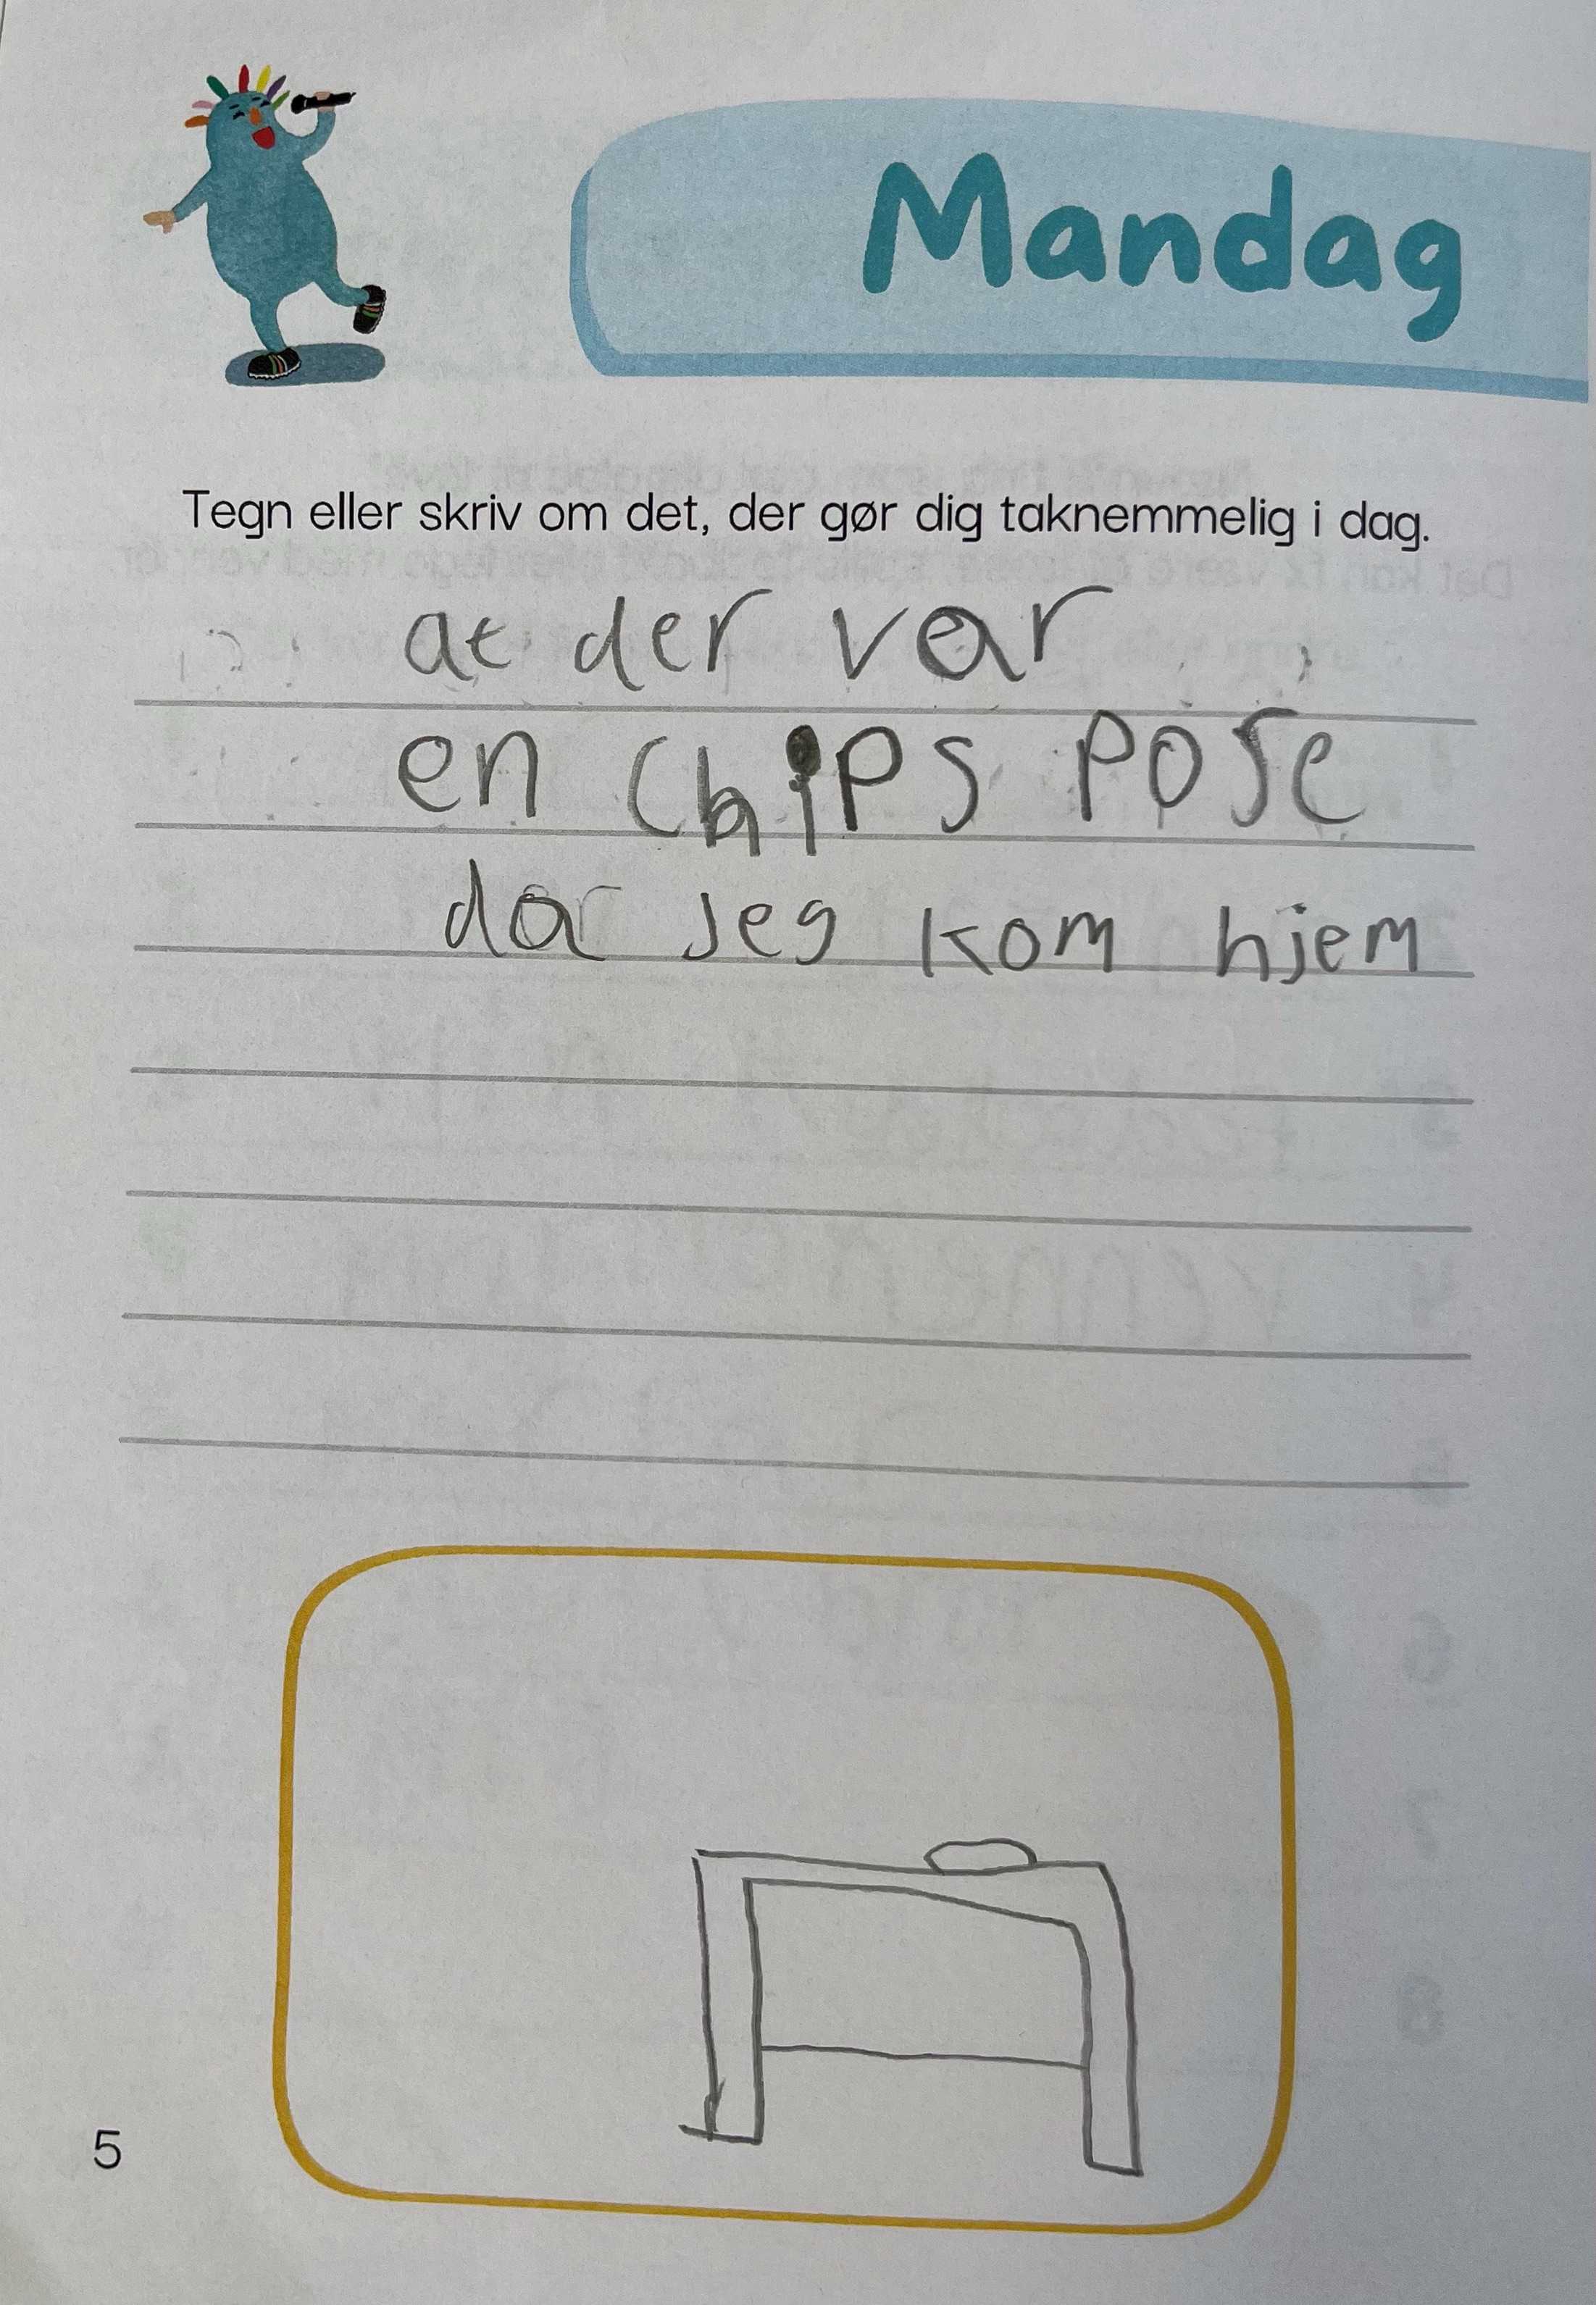 Mandag
Tegn eller skriv om det, der gør dig taknemmelig i dag.
at der var
en chips pose
da jeg kom hjem
5